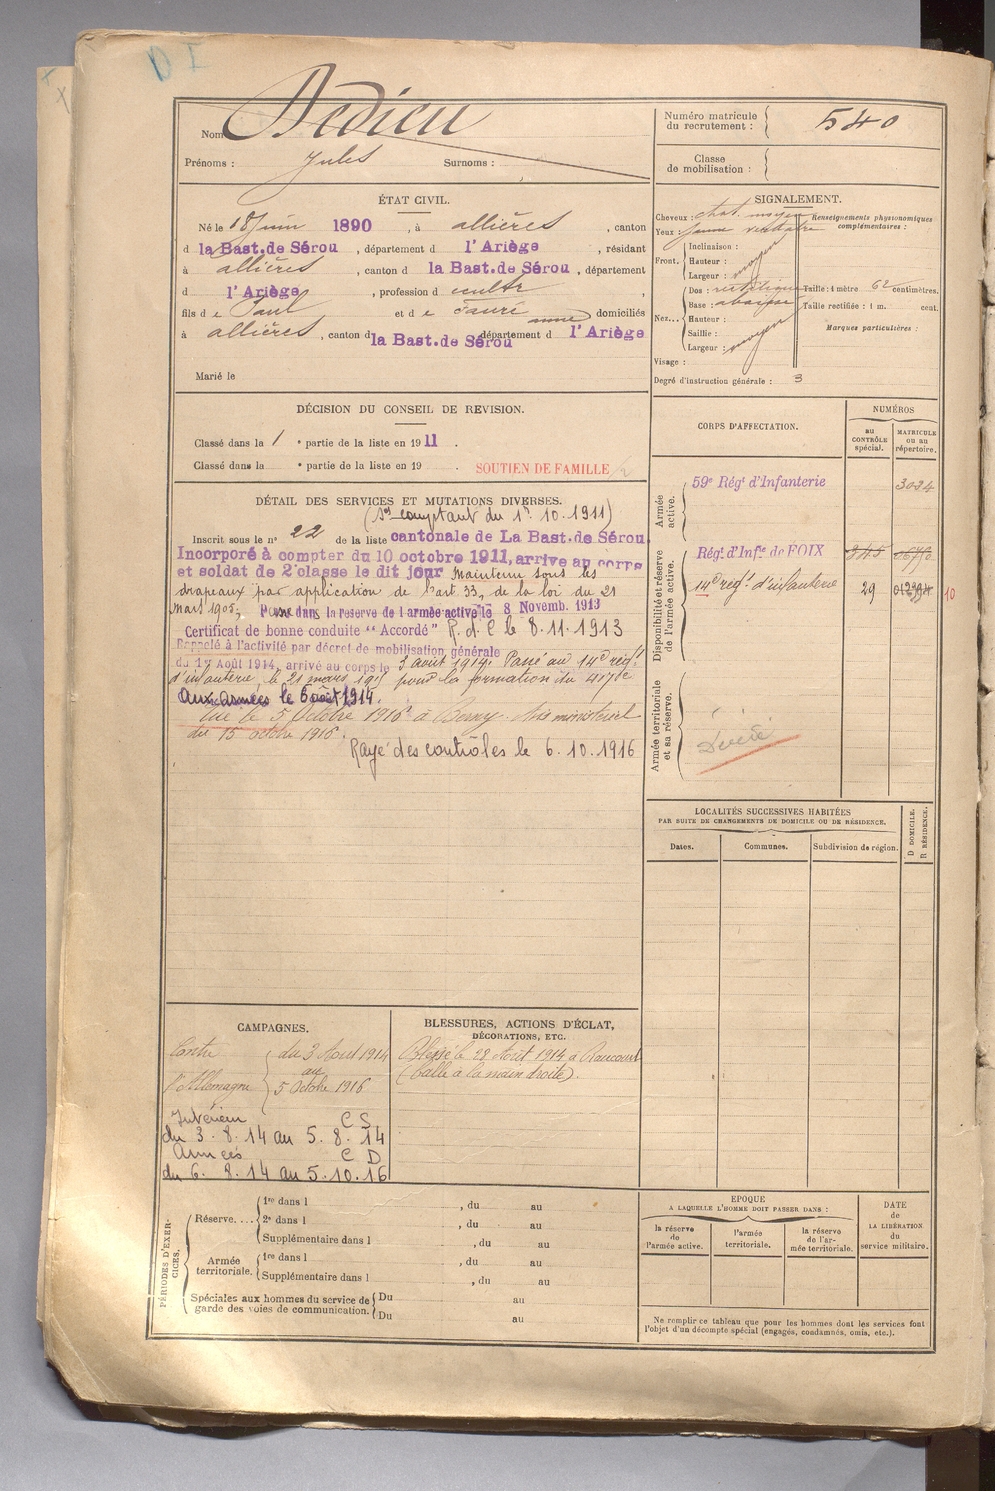 D I
Nom Dedieu
Prénoms : Jules Surnoms :
Numéro matricule du recrutement : 540
Classe de mobilisation :
ÉTAT CIVIL.
Né le 18 Juin 1890, à allières, canton
d la Bast. de Sérou, département d l'Ariège, résidant
à allières, canton d la Bast. de Sérou, département
d l'Ariège, profession d cultr
fils d e Paul et d e Fauré anne domiciliés
à allières, canton d la Bast. de Sérou département d l'Ariège
Marié le
SIGNALEMENT.
Cheveux : chat. moyen
Yeux : jaune verdatre
Renseignements physionomiques complémentaires :
Front. Inclinaison :
Hauteur : moyen
Largeur :
Nez... Dos : rectiligne
Base : abaissé
Hauteur :
Saillie : moyen
Largeur :
Taille : 1 mètre 62 centimètres.
Taille rectifiée : 1 m. cent.
Marques particulières :
Visage :
Degré d'instruction générale : 3
DÉCISION DU CONSEIL DE REVISION.
Classé dans la 1e partie de la liste en 1911.
Classé dans la e partie de la liste en 19 .
SOUTIEN DE FAMILLE
CORPS D'AFFECTATION.
NUMÉROS
au CONTRÔLE spécial.
MATRICULE ou au répertoire.
Armée active.
59e Régt d'Infanterie 3024
Disponibilité et réserve de l'armée active.
Régt d'Infie de FOIX
14e régt d'infanterie 29
10
Armée territoriale et sa réserve.
Décédé
DÉTAIL DES SERVICES ET MUTATIONS DIVERSES.
(Sce comptant du 1er 10.1911)
Inscrit sous le n° 22 de la liste cantonale de La Bast. de Sérou
Incorporé à compter du 10 octobre 1911, arrivé au corps
et soldat de 2e classe le dit jour Maintenu sous les
drapeaux par application de l'art 33, de la loi du 21
mars 1905, Passé dans la réserve de l'armée active le 8 Novemb. 1913
Certificat de bonne conduite "Accordé" R. d. C le 8.11.1913
Rappelé à l'activité par décret de mobilisation générale
du 1er Août 1914, arrivé au corps le 3 août 1914. Passé au 14e régt
d'infanterie le 21 mars 1915 pour la formation du 417e
Aux armées le 6 août 1914.
Tué le 5 Octobre 1916 à Berny. Avis ministériel
du 15 octobre 1916.
Rayé des controles le 6.10.1916
LOCALITÉS SUCCESSIVES HABITÉES
PAR SUITE DE CHANGEMENTS DE DOMICILE OU DE RÉSIDENCE.
Dates.
Communes.
Subdivision de région.
D DOMICILE.
R RÉSIDENCE.
CAMPAGNES.
Contre l'Allemagne du 3 Août 1914
au
5 Octobre 1916
Intérieur C S
du 3.8.14 au 5.8.14
Armées C D
du 6.8.14 au 5.10.16
BLESSURES, ACTIONS D'ÉCLAT,
DÉCORATIONS, ETC.
Blessé le 28 Août 1914 à Raucourt
(balle à la main droite).
PÉRIODES D'EXERCICES.
Réserve.... 1re dans l , du au
2e dans l , du au
Supplémentaire dans l , du au
Armée territoriale. 1re dans l , du au
Supplémentaire dans l , du au
Spéciales aux hommes du service de garde des voies de communication. Du au
Du au
EPOQUE
A LAQUELLE L'HOMME DOIT PASSER DANS :
la réserve de l'armée active.
l'armée territoriale.
la réserve de l'armée territoriale.
DATE de LA LIBÉRATION du service militaire.
Ne remplir ce tableau que pour les hommes dont les services font
l'objet d'un décompte spécial (engagés, condamnés, omis, etc.).